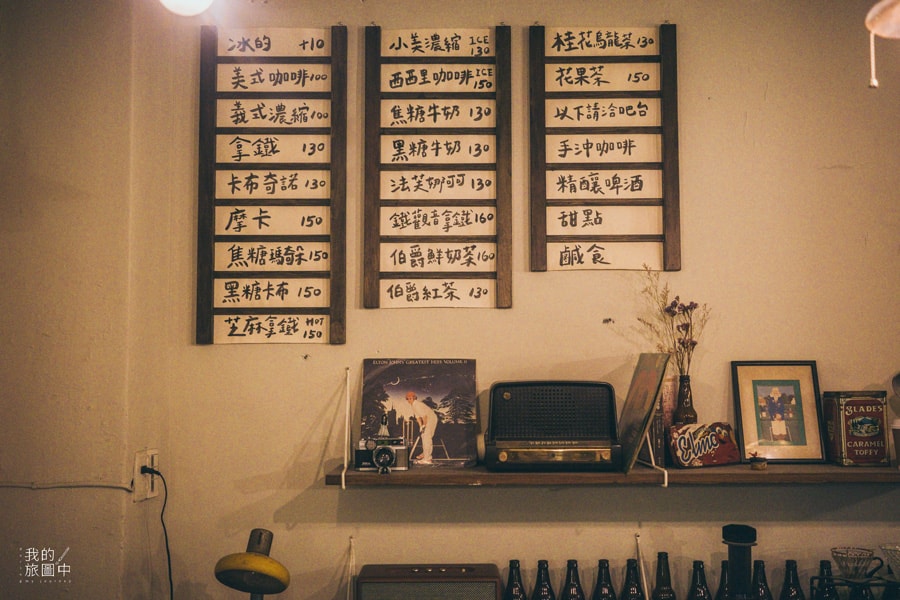 冰的 +10
美式咖啡 100
義式濃縮 100
拿鐵 130
卡布奇諾 130
摩卡 150
焦糖瑪奇朵 150
黑糖卡布 150
芝麻拿鐵 HOT 150
小美濃縮 ICE 130
西西里咖啡 ICE 150
焦糖牛奶 130
黑糖牛奶 130
法芙娜可可 130
鐵觀音拿鐵 160
伯爵鮮奶茶 160
伯爵紅茶 130
桂花烏龍茶 130
花果茶 150
以下請洽吧台
手沖咖啡
精釀啤酒
甜點
鹹食
ELTON JOHN'S GREATEST HITS VOLUME II
Elmo
SLADES
CARAMEL
TOFFY
我的
旅圖中